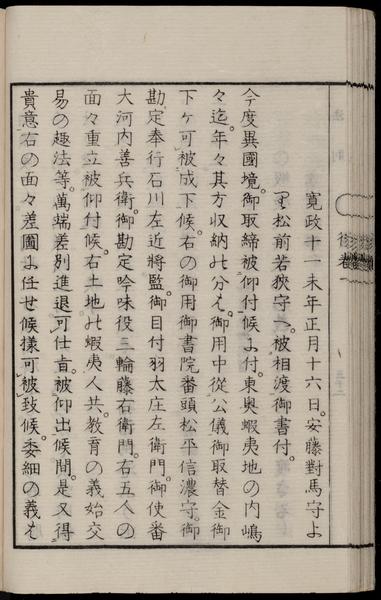 寛政十一未年正月十六日。安藤對馬守ゟ
松前若狹守へ。被相渡御書付。
今度異國境。御取締被仰付候に付。東奥蝦夷地の内嶋
々迄。年々其方収納の分も。御用中從公儀御取替金御
下ケ可被成下候。右の御用御書院番頭松平信濃守。御
勘定奉行石川左近將監。御目付羽太庄左衛門。御使番
大河内善兵衛。御勘定吟味役三輪藤右衛門。右五人の
面々重立被仰付候。右土地の蝦夷人共。教育の義始交
易の趣法等。萬端差別進退可仕旨。被仰出候間。是又得
貴意右の面々差圖に任せ候樣可被致候。委細の義は